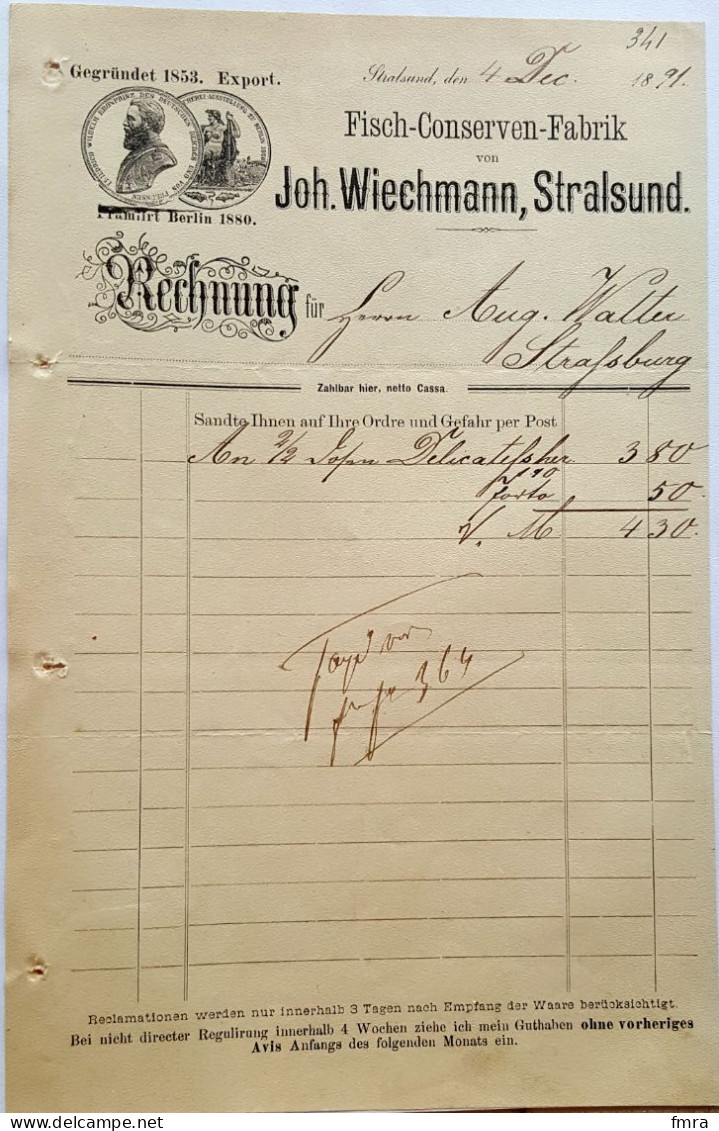 341
Gegründet 1853. Export.
Stralsund, den 4 Dec. 1891.
FRIEDRICH WILHELM KRONPRINZ DES DEUTSCHEN REICHES UND VON PREUSSEN
Fisch-Conserven-Fabrik
von
Joh. Wiechmann, Stralsund.
Prämiirt Berlin 1880.
Rechnung für Herrn Aug. Walter
Straßburg
Zahlbar hier, netto Cassa.
Sandte Ihnen auf Ihre Ordre und Gefahr per Post
An 2/2 Delicateßher 3 80
190
Porto 50
M 4 30
364
Reclamationen werden nur innerhalb 3 Tagen nach Empfang der Waare berücksichtigt.
Bei nicht directer Regulirung innerhalb 4 Wochen ziehe ich mein Guthaben ohne vorheriges
Avis Anfangs des folgenden Monats ein.
fmra